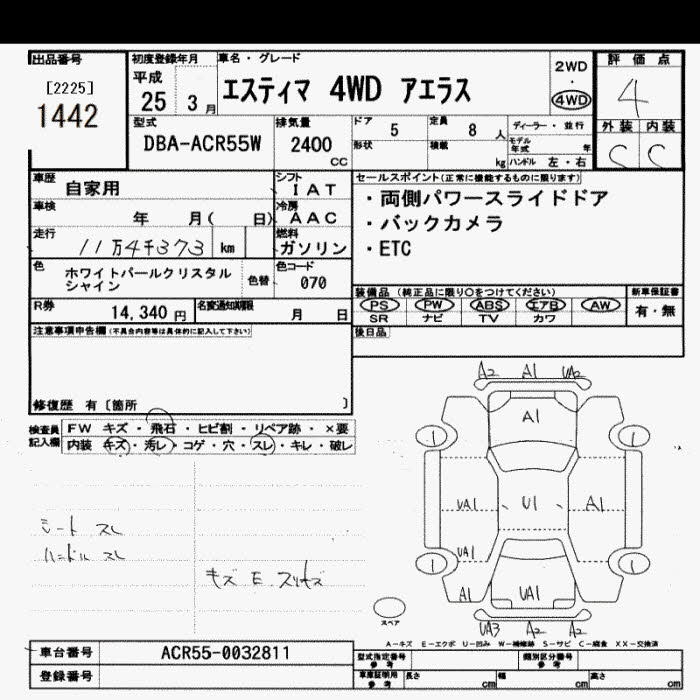 出品番号
[2225]
1442
初度登録年月
平成
25 3 月
車名・グレード
エスティマ 4WD アエラス
2WD
・
4WD
評価点
4
外装 内装
C C
型式
DBA-ACR55W
排気量
2400
CC
ドア 5
定員 8 人
形状
積載 kg
ディーラー・並行
モデル年式 年
ハンドル 左・右
車歴 自家用
車検 年 月( 日)
走行 11万4千373 km
色 ホワイトパールクリスタル
シャイン
色替
シフト
IAT
冷房
AAC
燃料
ガソリン
色コード
070
R券 14,340 円
名変通知期限 月 日
セールスポイント(正常に機能するものに限ります)
・両側パワースライドドア
・バックカメラ
・ETC
装備品 (純正品に限り○をつけてください)
新車保証書
PS PW ABS エアB AW
SR ナビ TV カワ
有・無
後日品
注意事項申告欄(不具合内容等は具体的に記入して下さい)
修復歴 有〔箇所 〕
検査員
記入欄
FW キズ・飛石・ヒビ割・リペア跡・×要
内装 キズ・汚レ・コゲ・穴・スレ・キレ・破レ
シート スレ
ハンドル スレ
A2 A1 UA2
A1
1 1
UA1 U1 A1
UA1
1 1
A1 UA1
UA3 A2 A2
スペア
A-キズ E-エクボ U-凹み W-補修跡 S-サビ C-腐食 XX-交換済
車台番号 ACR55-0032811
登録番号
型式指定番号
参考
類別区分番号
参考
車庫証明用
参考
長さ cm 幅 cm 高さ cm